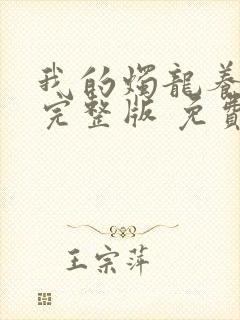 我的燭龍養
完整版 免費
王宗萍